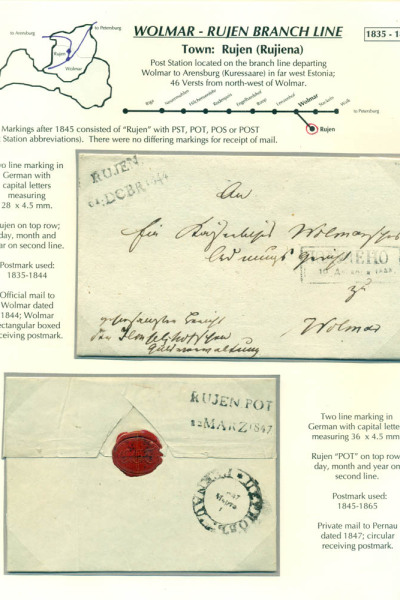 to Arensburg
to Petersburg
Rujen
Wolmar
WOLMAR - RUJEN BRANCH LINE
1835 - 1
Town: Rujen (Rujiena)
Post Station located on the branch line departing
Wolmar to Arensburg (Kuressaare) in far west Estonia;
46 Versts from north-west of Wolmar.
Riga
Engelhardshof
Roop
Lenzenhof
Wolmar
Stackeln
Walk
to Petersburg
Rujen
Markings after 1845 consisted of "Rujen" with PST, POT, POS or POST
Station abbreviations). There were no differing markings for receipt of mail.
wo line marking in
German with
capital letters
measuring
28 x 4.5 mm.
ujen on top row;
day, month and
ar on second line.
Postmark used:
1835-1844
Official mail to
Wolmar dated
1844; Wolmar
ectangular boxed
ceiving postmark.
RUJEN.
An
Ein Kaiserliches Wolmarsches
Ordnungs Gericht
ЧЕНО
zu
Wolmar
RUJEN POT
12 MARZ 1847
Two line marking in
German with capital lette
measuring 36 x 4.5 mm
Rujen "POT" on top row
day, month and year on
second line.
Postmark used:
1845-1865
Private mail to Pernau
dated 1847; circular
receiving postmark.